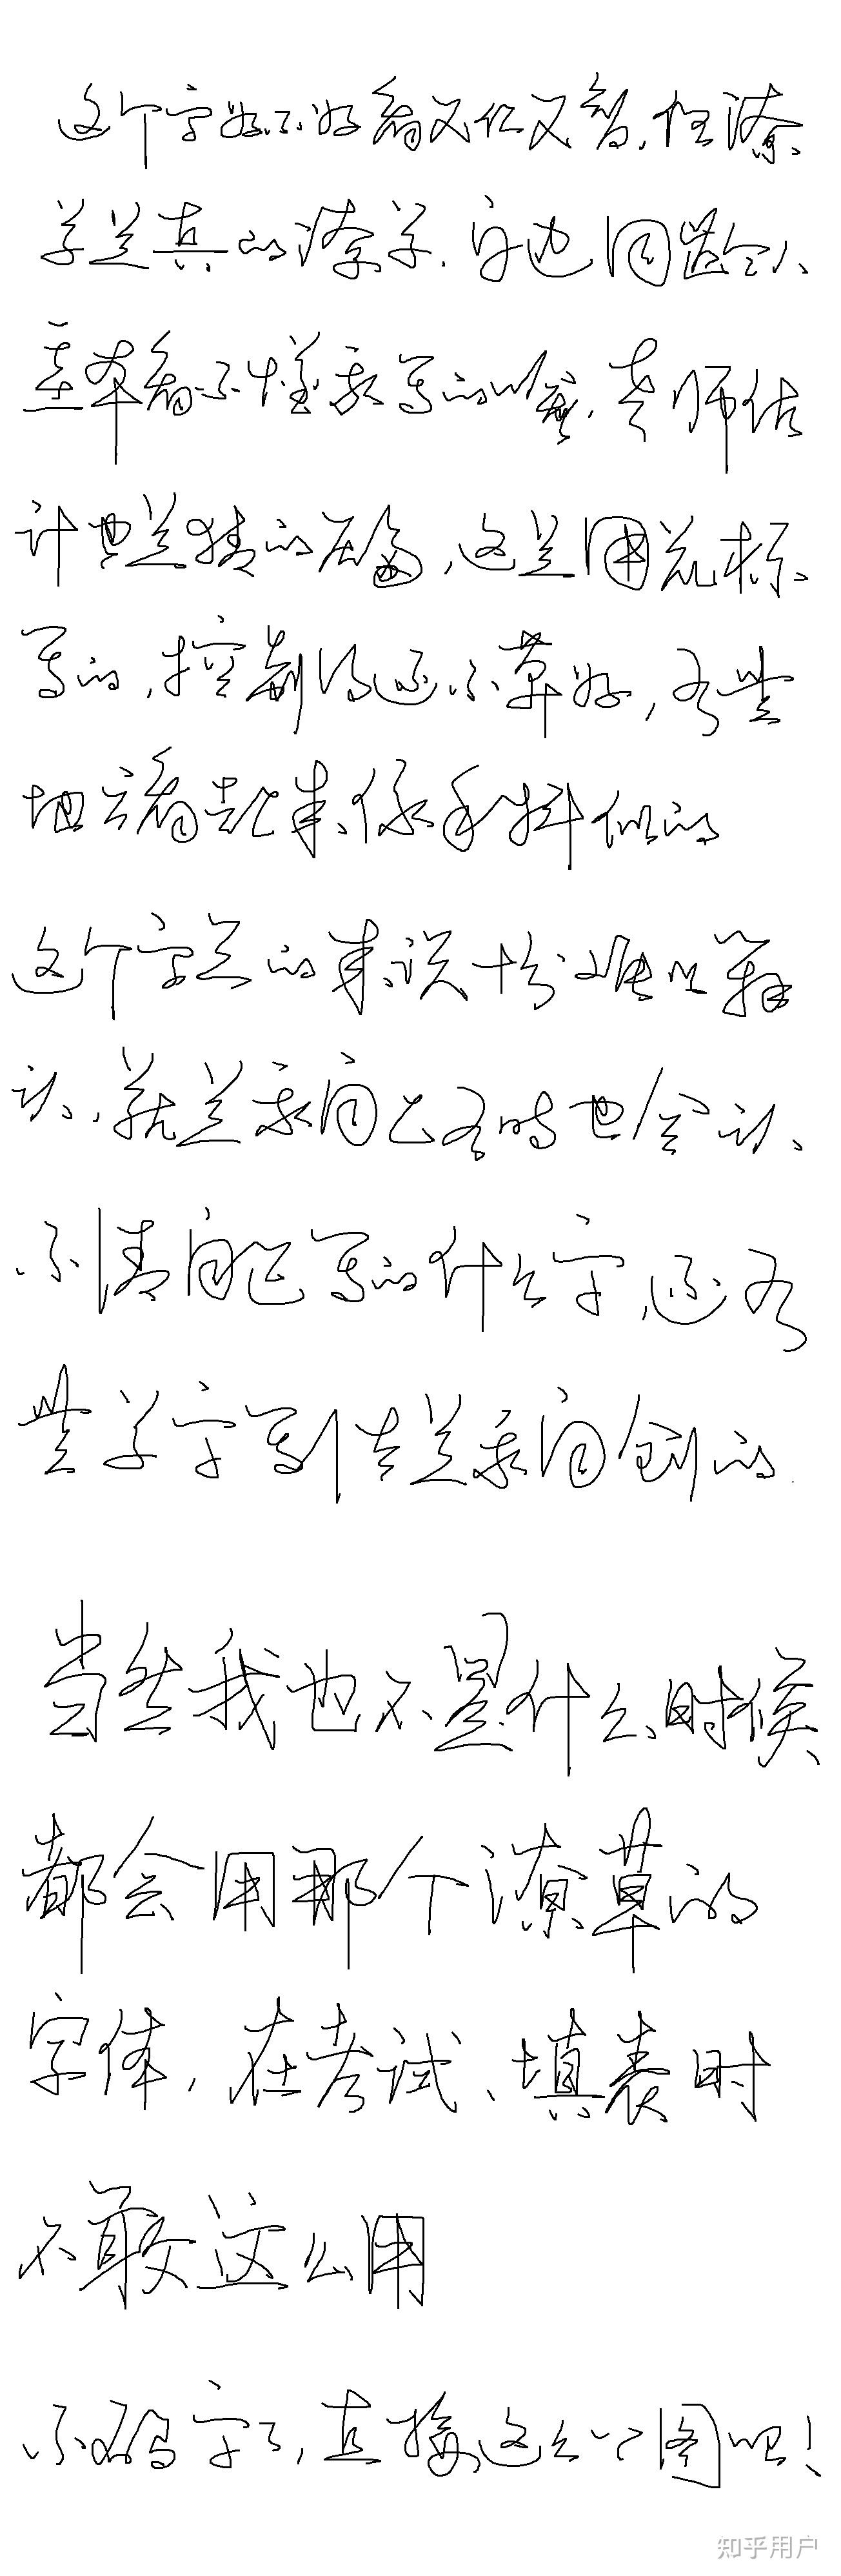 这个字好不好看见仁见智,但潦
草是真的潦草.身边同龄人
基本看不懂我写的啥,老师估
计也是猜的居多,这是用鼠标
写的,控制得还不算好,有些
地方看起来像手抖似的
这个字是的来说十分难以辨
认,就是我自己有时也会认
不清自己写的什么字,还有
些草字写法是我自创的.
当然我也不是什么时候
都会用那个潦草的
字体,在考试、填表时
不敢这么用
不码字了,直接这么个图吧!
知乎用户